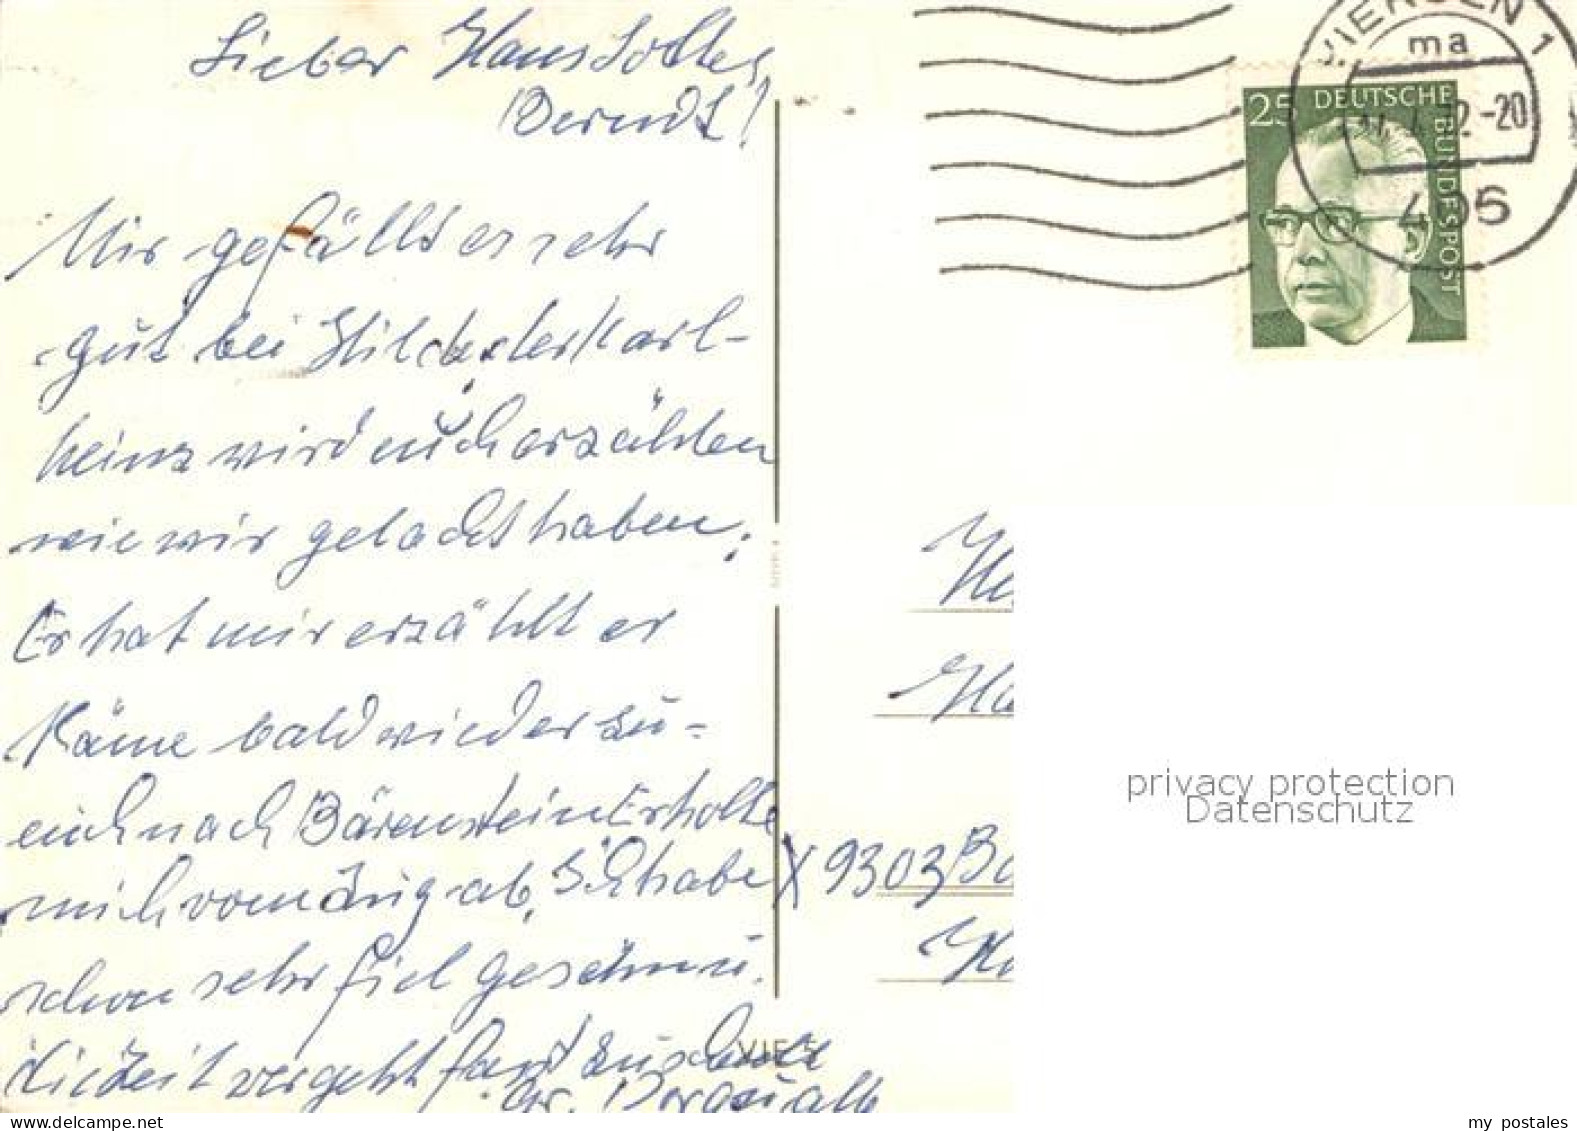 Lieber Hans Lothar
Berndt!
Mir gefällt es sehr
gut bei Hilde, der Karl-
heinz wird euch erzählen
wie wir gelacht haben,
Er hat mir erzählt er
käme bald wieder zu-
euch nach Bärenstein Erholte
mich von ab, Ich habe
schon sehr fiel
die Zeit vergeht fast zu schnell
Gr.
VIERSEN 1
ma
-20
406
25 DEUTSCHE
BUNDESPOST
He
Ha
X 9303 Bä
privacy protection
Datenschutz
my postales